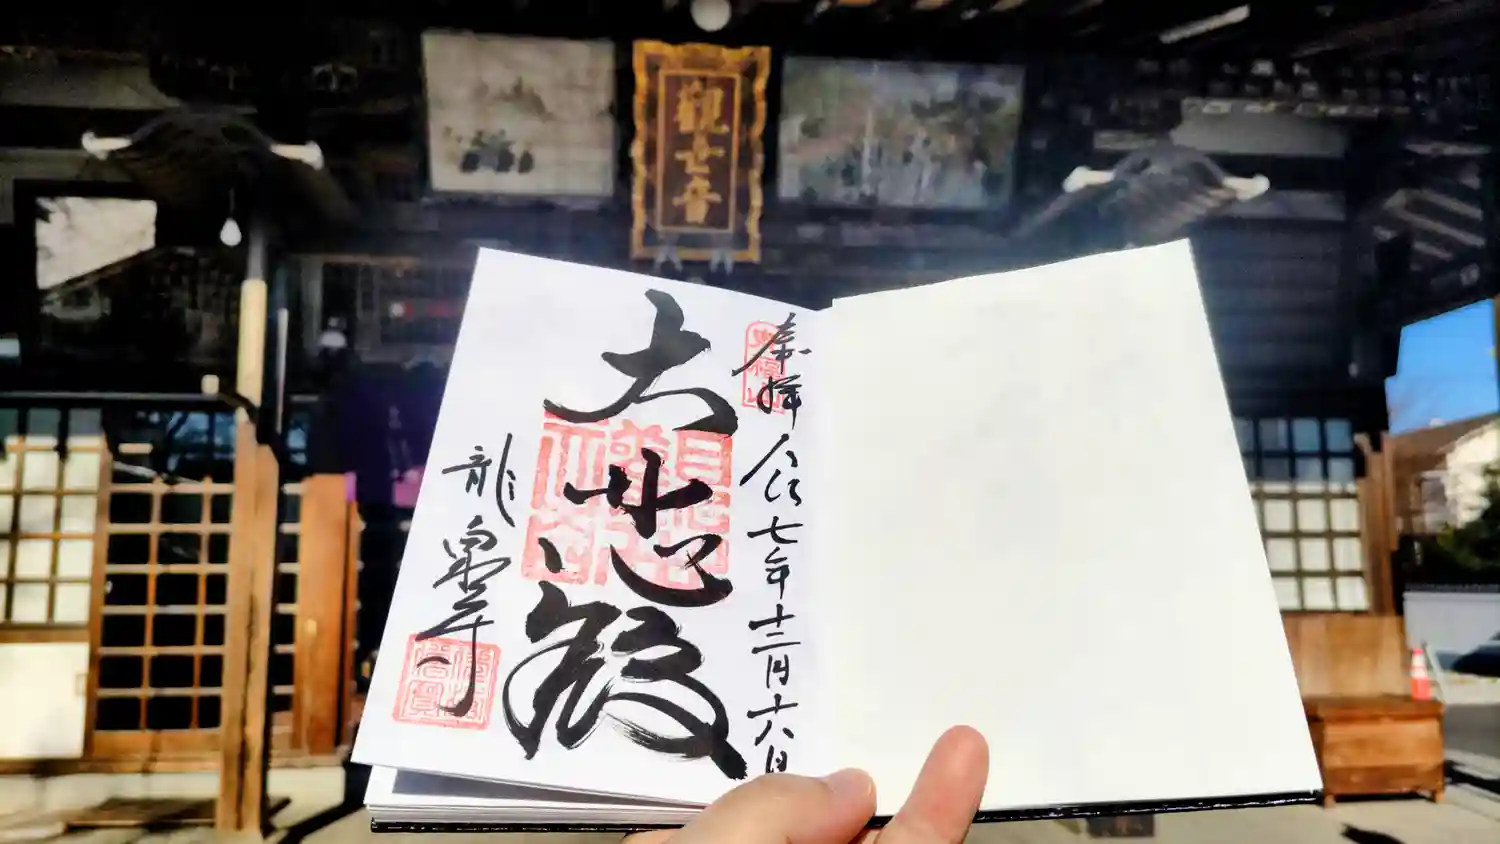 觀世音
奉拝 令和七年十二月十六日
大悲殿
龍泉寺